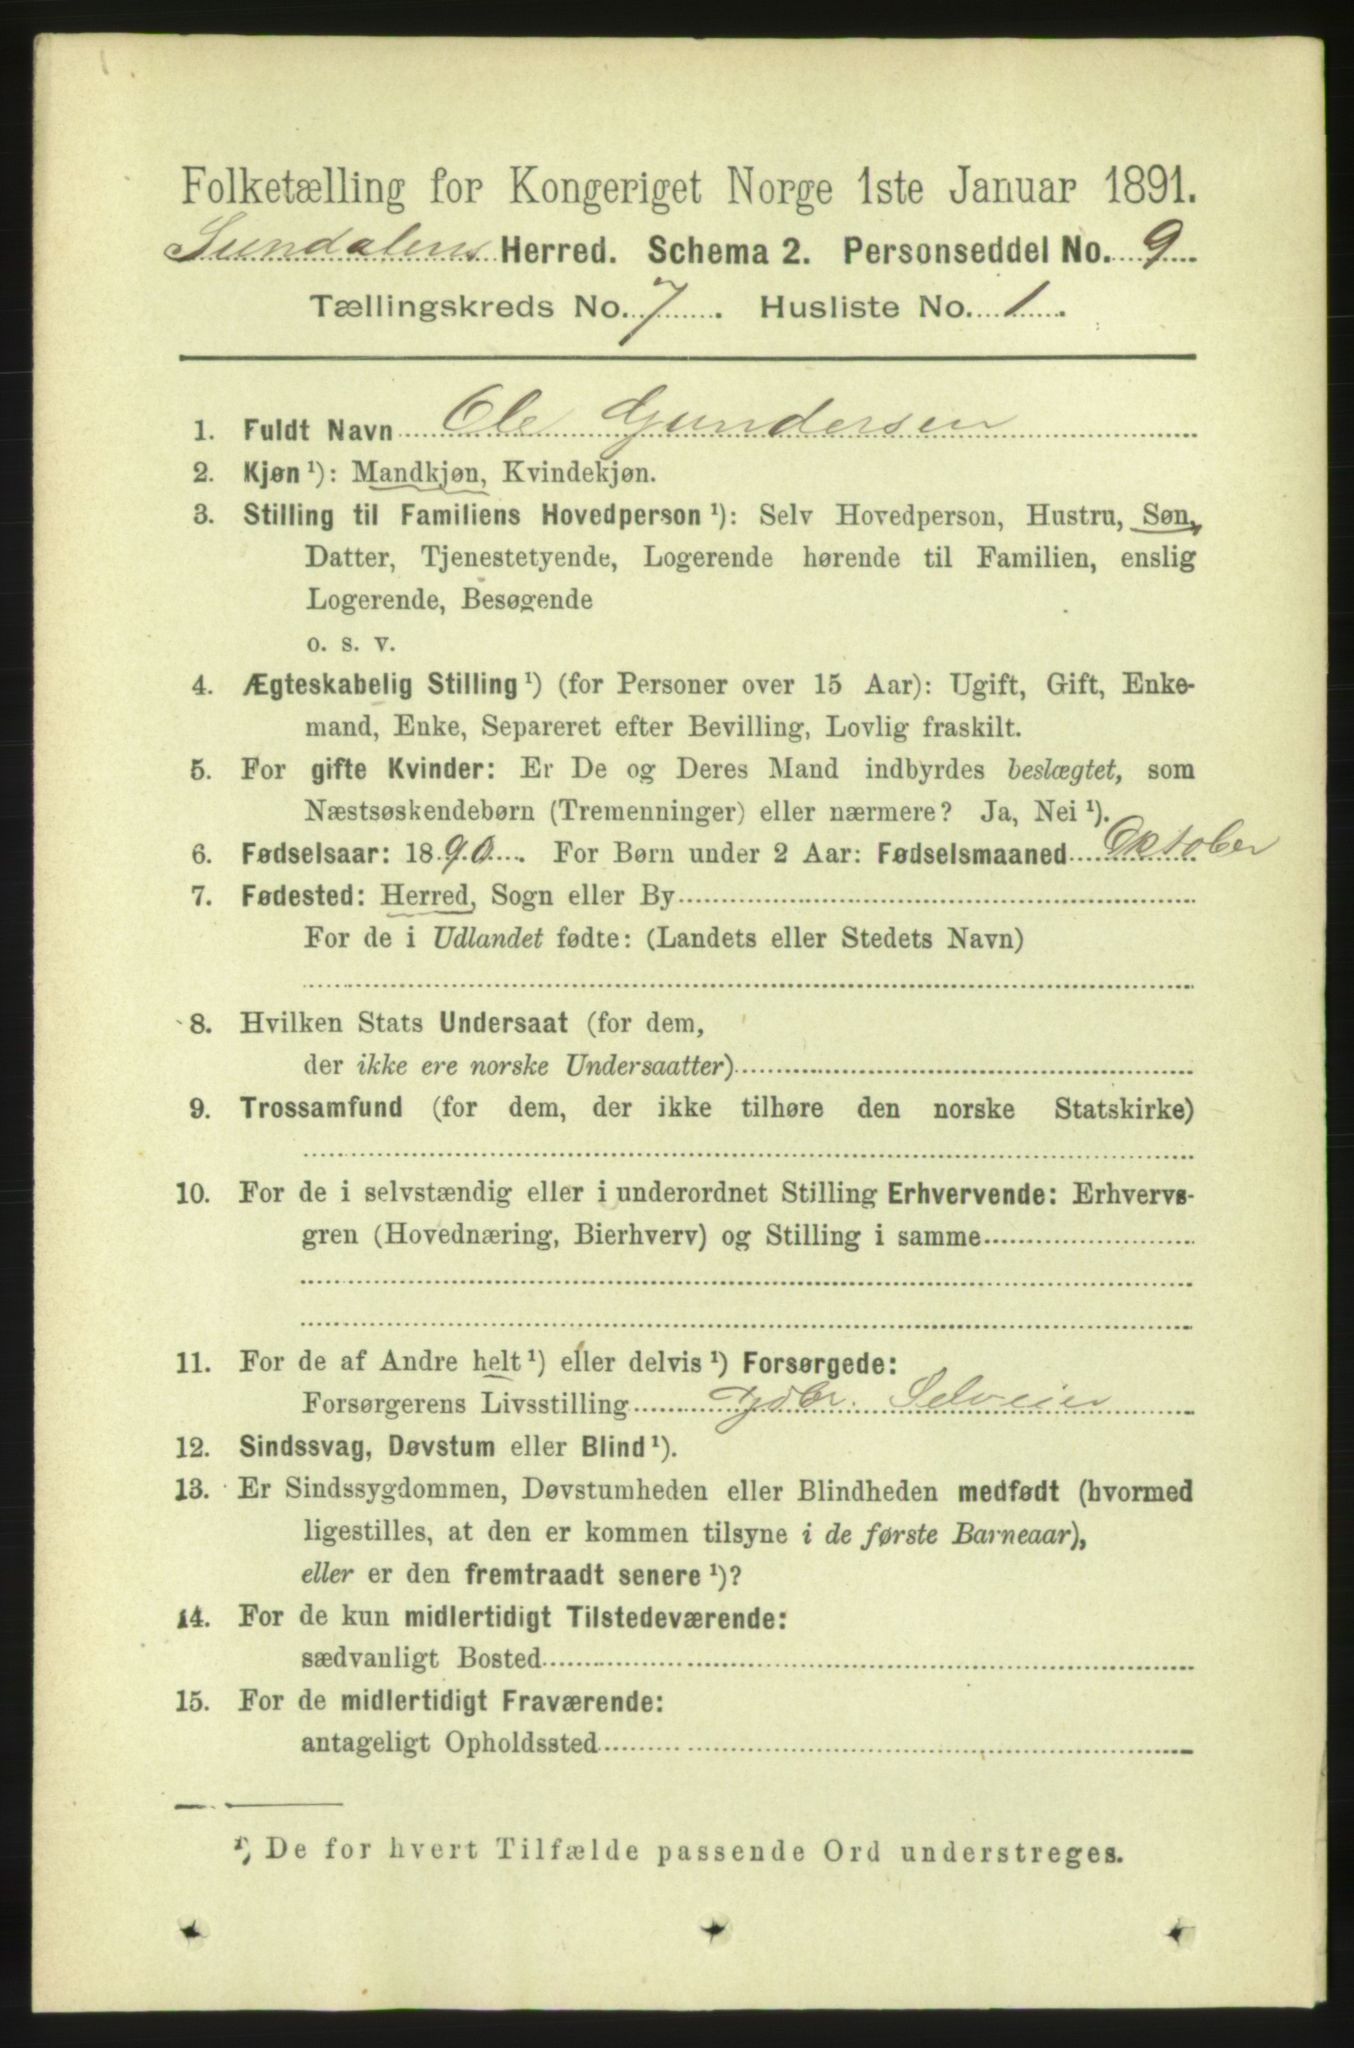 Folketælling for Kongeriget Norge 1ste Januar 1891.
Sundalens Herred. Schema 2. Personseddel No. 9
Tællingskreds No. 7. Husliste No. 1.
1. Fuldt Navn Ole Gundersen
2. Kjøn ¹): Mandkjøn, Kvindekjøn.
3. Stilling til Familiens Hovedperson ¹): Selv Hovedperson, Hustru, Søn,
Datter, Tjenestetyende, Logerende hørende til Familien, enslig
Logerende, Besøgende
o. s. v.
4. Ægteskabelig Stilling ¹) (for Personer over 15 Aar): Ugift, Gift, Enke-
mand, Enke, Separeret efter Bevilling, Lovlig fraskilt.
5. For gifte Kvinder: Er De og Deres Mand indbyrdes beslægtet, som
Næstsøskendebørn (Tremenninger) eller nærmere? Ja, Nei ¹).
6. Fødselsaar: 1890. For Børn under 2 Aar: Fødselsmaaned Oktober
7. Fødested: Herred, Sogn eller By
For de i Udlandet fødte: (Landets eller Stedets Navn)
8. Hvilken Stats Undersaat (for dem,
der ikke ere norske Undersaatter)
9. Trossamfund (for dem, der ikke tilhøre den norske Statskirke)
10. For de i selvstændig eller i underordnet Stilling Erhvervende: Erhvervs-
gren (Hovednæring, Bierhverv) og Stilling i samme
11. For de af Andre helt ¹) eller delvis ¹) Forsørgede:
Forsørgerens Livsstilling Gdbr. Selveier
12. Sindssvag, Døvstum eller Blind ¹).
13. Er Sindssygdommen, Døvstumheden eller Blindheden medfødt (hvormed
ligestilles, at den er kommen tilsyne i de første Barneaar),
eller er den fremtraadt senere ¹)?
14. For de kun midlertidigt Tilstedeværende:
sædvanligt Bosted
15. For de midlertidigt Fraværende:
antageligt Opholdssted
¹) De for hvert Tilfælde passende Ord understreges.